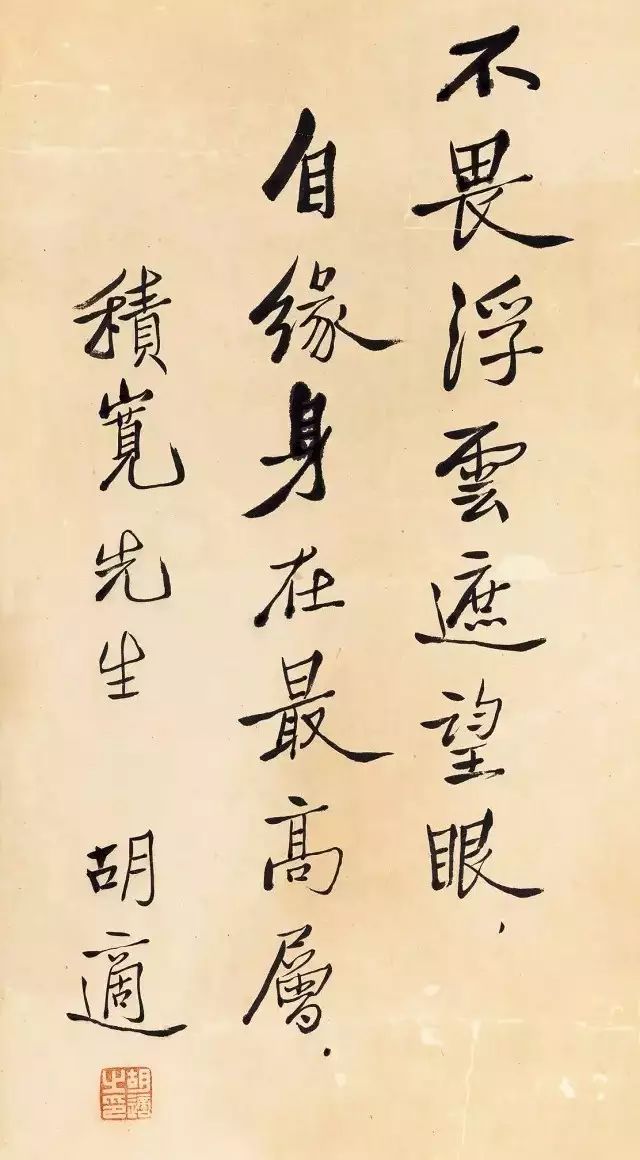 不畏浮雲遮望眼，
自緣身在最高層．
積寬先生　胡適
胡適之印